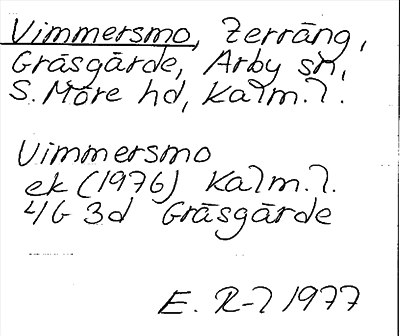 Vimmersmo, Terräng,
Gräsgärde, Arby sn,
S. Möre hd, Kalm. l.
Vimmersmo
ek (1976) Kalm. l.
4G 3d Gräsgärde
E. R-l 1977